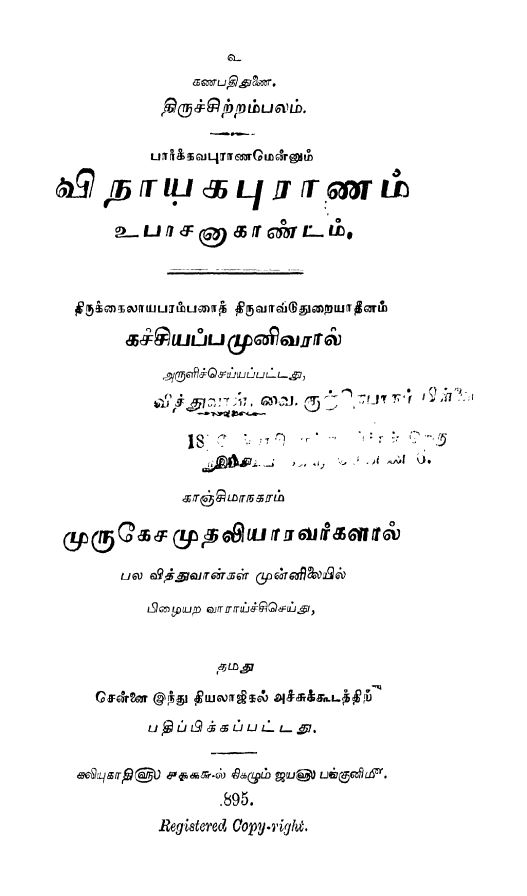 உ
கணபதிதுணை.
திருச்சிற்றம்பலம்.
பார்க்கவபுராணமென்னும்
விநாயகபுராணம்
உபாசனாகாண்டம்.
திருக்கைலாயபரம்பரைத் திருவாவடுதுறையாதீனம்
கச்சியப்பமுனிவரால்
அருளிச்செய்யப்பட்டது,
வித்துவான். வை.
18
காஞ்சிமாநகரம்
முருகேசமுதலியாரவர்களால்
பல வித்துவான்கள் முன்னிலையில்
பிழையற வாராய்ச்சிசெய்து,
தமது
சென்னை இந்து தியலாஜிகல் அச்சுக்கூடத்திற்
பதிப்பிக்கப்பட்டது.
கலியுகாதி௵ நிகழும் ஜய௵ பங்குனி௴.
895.
Registered Copy-right.